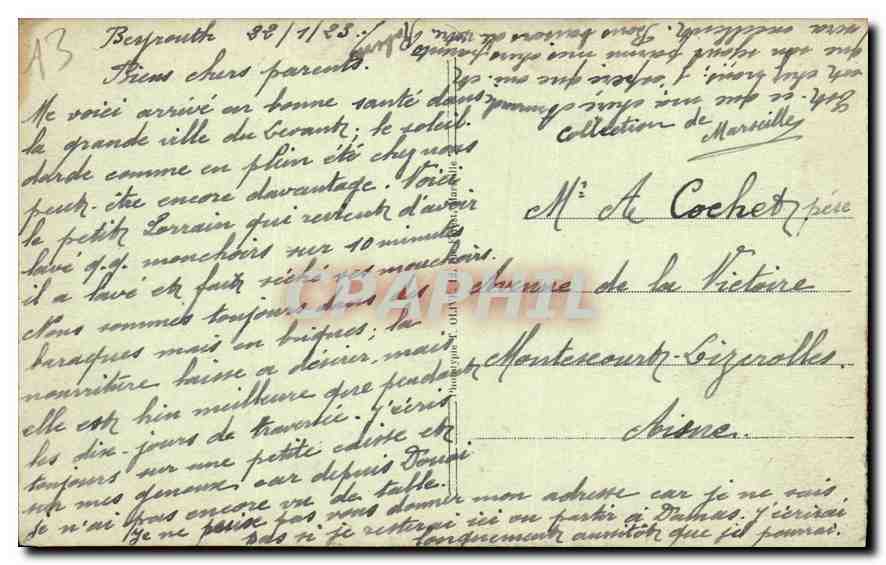 A3
Beyrouth 22/1/23.
Biens chers parents.
Me voici arrivé en bonne santé dans
la grande ville du Levant; le soleil
darde comme en plein été chez vous
peut-être encore davantage. Voici
le petit Lorrain qui revient d'avoir
lavé q.q. mouchoirs sur 10 minutes
il a lavé et fait séché ses mouchoirs.
Nous sommes toujours dans des
baraques mais en briques; la
nourriture laisse a désirer, mais
elle est bien meilleure que pendant
les dix-jours de traversée. J'écris
toujours sur une petite caisse et
sur mes genoux, car depuis Douai
je n'ai pas encore vu de table.
Je ne puis pas vous donner mon adresse car je ne sais
pas si je resterai ici ou partir à Damas. J'écrirai
longuement aussitôt que je pourrai.
Collection de
Marseille
Mr A Cochet père
Avenue de la Victoire
Montescourt-Lizerolles.
Aisne.
Phototype T. OLIVE
CPAPHIL